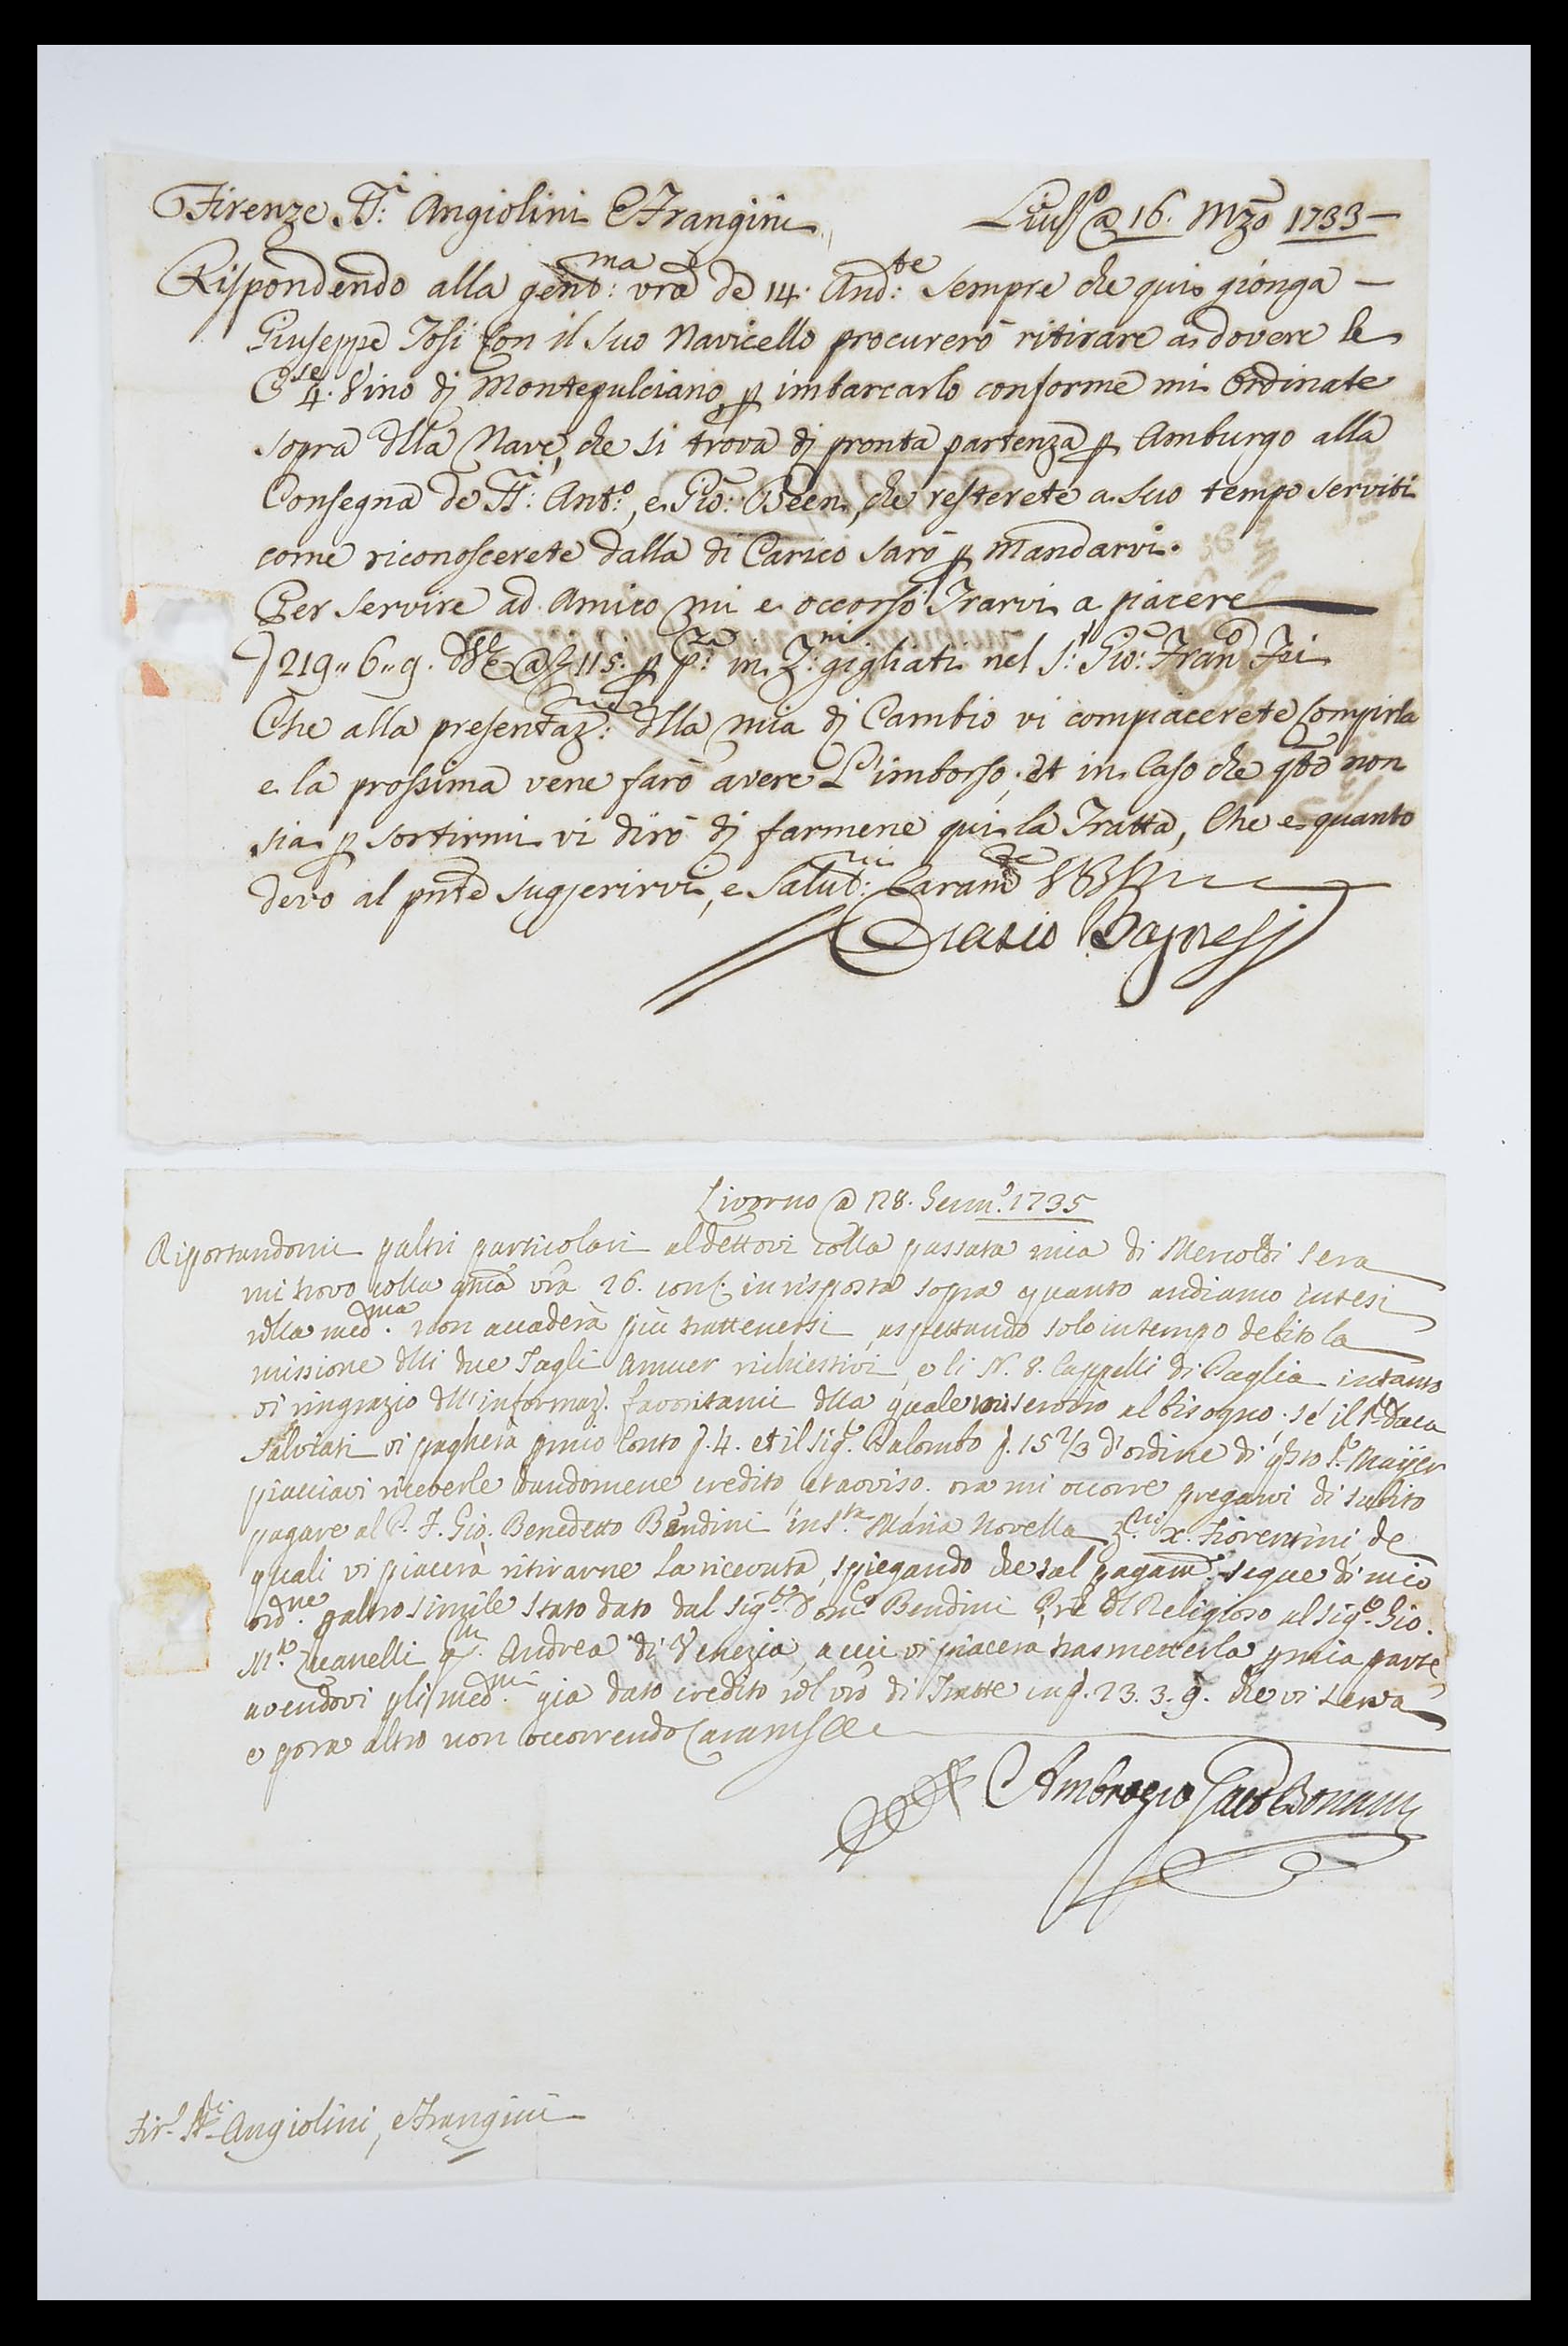 Firenze SS.ri Angiolini e Frangini
@ 16. Mzo 1733
Rispondendo alla gent:ma vra de 14. And:te sempre che qui gionga
Giuseppe Tosi con il suo Navicello procurerò ritirare a dovere le
Cse 4. Vino di Montepulciano p imbarcarlo conforme mi ordinate
sopra dlla Nave, che si trova di pronta partenza p Amburgo alla
Consegna de SS:ri Anto:, e Gio: Been, che resterete a suo tempo serviti
come riconoscerete dalla di Carico sarò p mandarvi.
Per servire ad Amico mi e occorso Trarvi a piacere
219,, 6,, 9. @ 115. p p:za in Z:ni gigliati nel S:r Gio: Frano
Che alla presentaz:ne dlla mia di Cambio vi compiacerete compirla
e la prossima vene farò avere L'imborso, et in Caso che qto non
sia p sortirmi vi dirò di farmene qui la Tratta, Che e quanto
devo al pnte sugerirvi, e salut:vi Caramte
Orasio Bagnesi
Livorno @ 28. Genn.o 1735
Riportandomi paltri particolari aldettovi colla passata mia di Mercoldi sera
mi trovo colla vra 26. in risposta sopra quanto andiamo intesi
nlla med.ma non accaderà più trattenersi, aspettando solo in tempo debito la
missione dlli due Tagli Amuer richiestivi, e li N. 8. Cappelli di Paglia intanto
vi ringrazio dll'informaz. favoritami dlla quale mi servirò al bisogno; se il S.r Duca
Salviati vi pagherà pmio Conto p. 4. et il Sig.r Palombo p. 15 2/3 d'ordine di qsto S.r Maijer
piacciavi riceverle dandomene credito, et avviso. ora mi occorre pregarvi di subito
pagare al P. F. Gio. Benedetto Bandini in S.ta Maria Novella z.ni x. fiorentini, de
quali vi piacerà ritirarne la riceuta, spiegando che tal pagam.to segue di mio
ord.ne paltro simile stato dato dal Sig.r Dom.o Bandini Pre dl Religioso al Sig.r Gio.
M.a Zucanelli qm. Andrea di Venezia, a cui vi piacerà trasmeterla pmia parte
avendovi gli med.mi già dato credito nl vro di Tratte in p. 23. 3. 9. che vi serva
e pora altro non occorrendo
Ambrogio Gaet
Fir.e SS.ri Angiolini, e Frangini